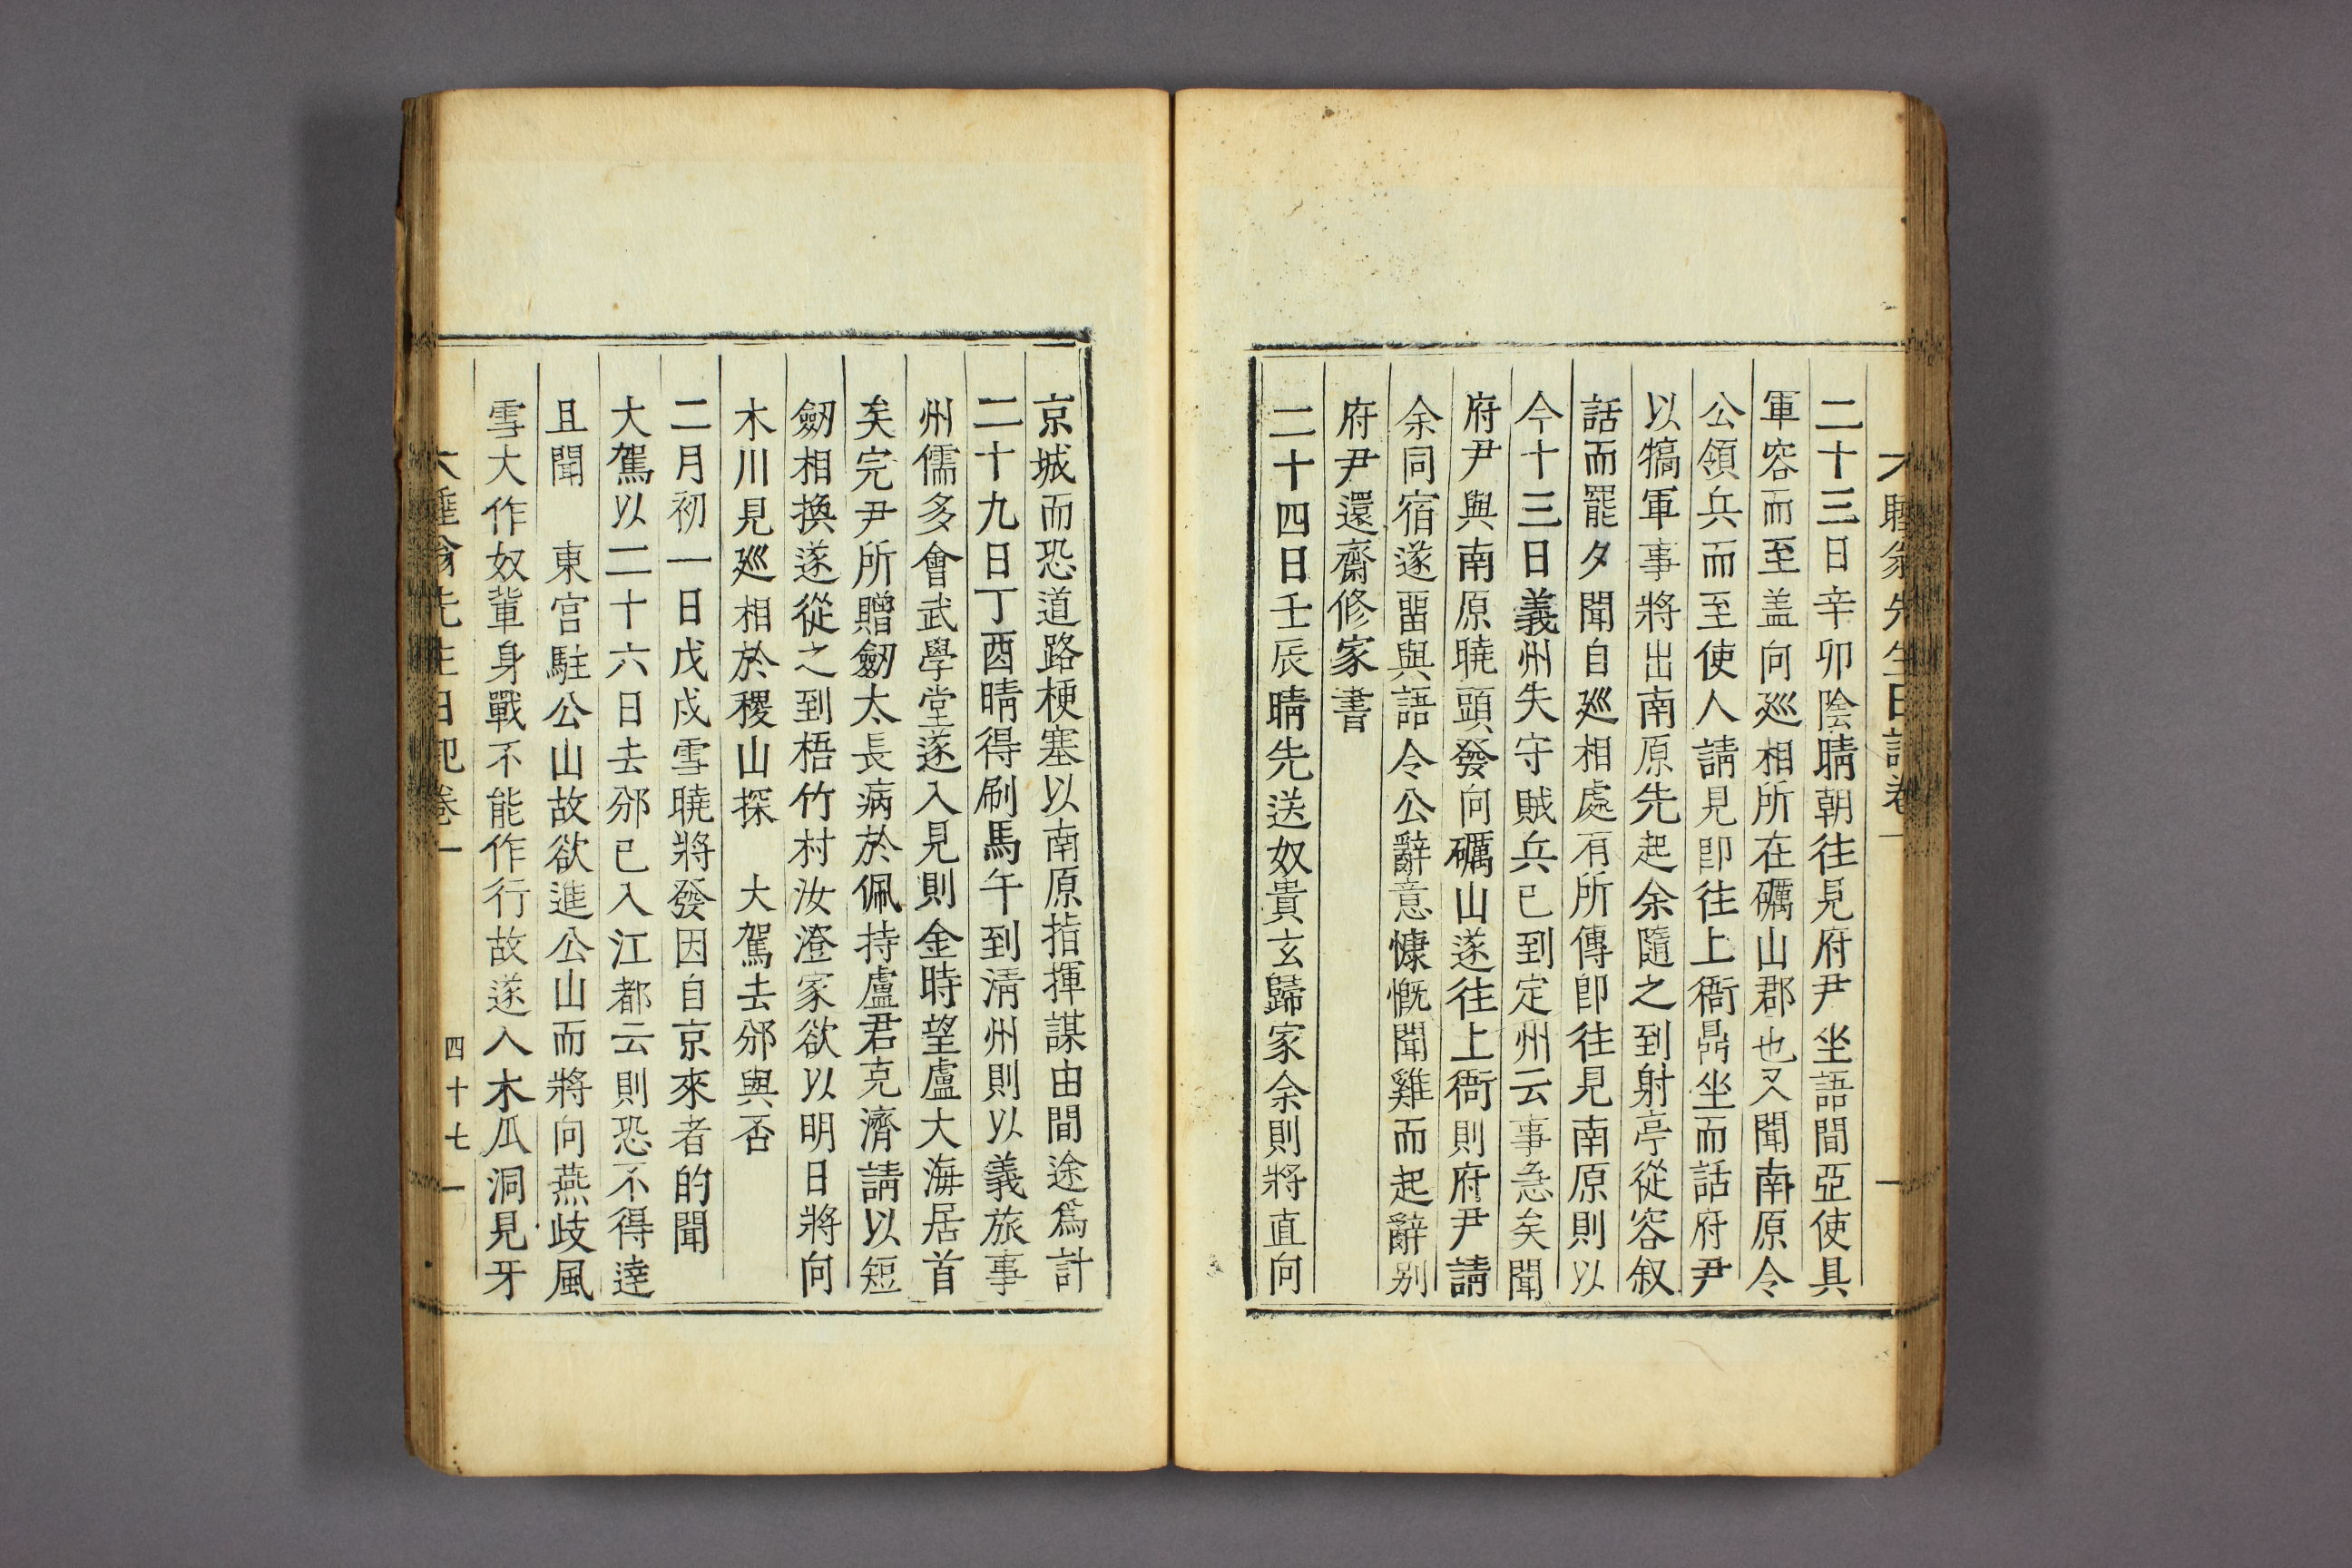 二十三日辛卯陰晴朝往見府尹坐語間亞使具
軍容而至盖向廵相所在礪山郡也又聞南原令
公領兵而至使人請見卽往上衙鼎坐而話府尹
以犒軍事將出南原先起余隨之到射亭從容叙
話而罷夕聞自廵相處有所傳卽往見南原則以
今十三日義州失守賊兵已到定州云事急矣聞
府尹與南原曉頭發向礪山遂往上衙則府尹請
余同宿遂畱與語令公辭意慷慨聞雞而起辭别
府尹還齋修家書
二十四日壬辰晴先送奴貴玄歸家余則將直向
京城而恐道路梗塞以南原指揮謀由間途爲計
二十九日丁酉晴得刷馬午到淸州則以義旅事
州儒多會武學堂遂入見則金時望盧大海居首
矣完尹所贈劒太長病於佩持盧君克濟請以短
劒相換遂從之到梧竹村汝澄家欲以明日將向
木川見廵相於稷山探 大駕去邠與否
二月初一日戊戌雪曉將發因自京來者的聞
大駕以二十六日去邠已入江都云則恐不得達
且聞 東宮駐公山故欲進公山而將向燕歧風
雪大作奴輩身戰不能作行故遂入木瓜洞見牙
先生日記卷一
四十七